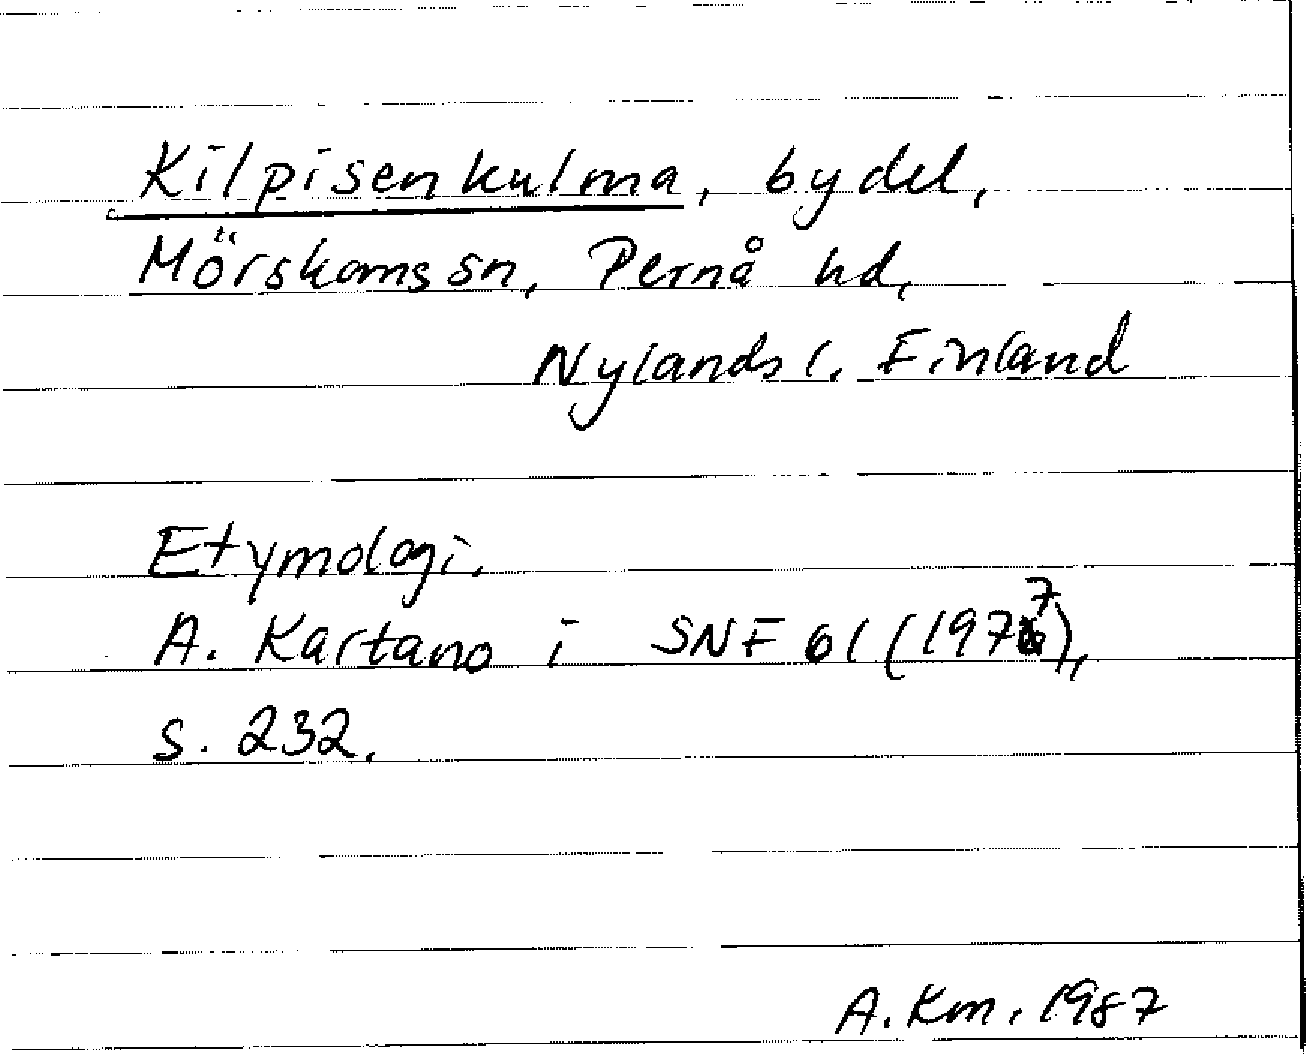 Kilpisenkulma, bydel,
Mörskoms sn, Pernå hd,
Nylands l. Finland
Etymologi.
A. Kartano i SNF 61 (1977),
s. 232.
A. Km. 1987